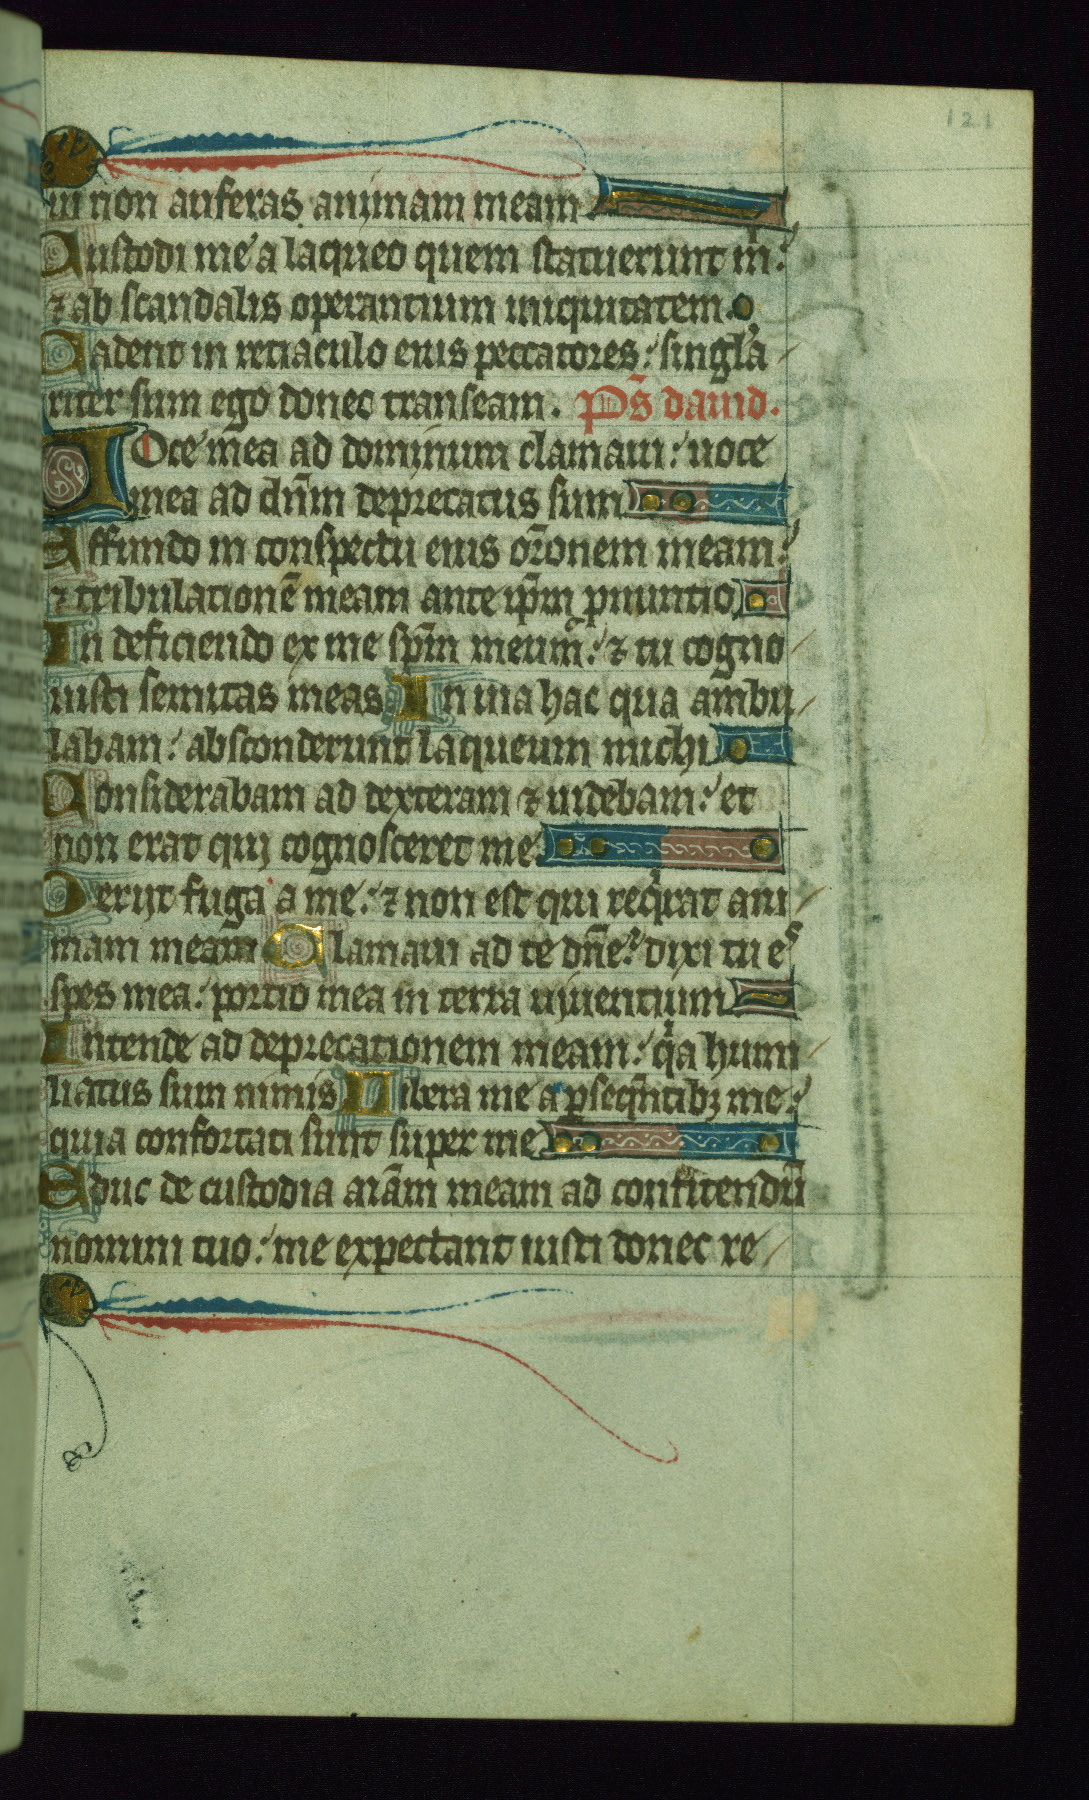 121
ui non auferas animam meam
Custodi me a laqueo quem statuerunt m̃:
⁊ ab scandalis operantium iniquitatem.
Cadent in retiaculo eius peccatores: singl'a
riter sum ego donec transeam. Ps̃ dauid.
Voce mea ad dominum clamaui: uoce
mea ad dñm deprecatus sum
Effundo in conspectu eius or̃onem meam:
⁊ tribulationẽ meam ante ip̃m pnuntio
In deficiendo ex me sp̃m meum: ⁊ tu cogno
uisti semitas meas In uia hac qua ambu
labam: absconderunt laqueum michi
Considerabam ad dexteram ⁊ uidebam: et
non erat qui cognosceret me
Periit fuga a me: ⁊ non est qui reqrat ani
mam meam Clamaui ad te dñe: dixi tu es
spes mea: portio mea in terra uiuentium
Intende ad deprecationem meam: qa humi
liatus sum nimis Libera me a pseqñtibꝫ me:
quia confortati sunt super me
Educ de custodia aiãm meam ad confitendũ
nomini tuo: me expectant iusti donec re